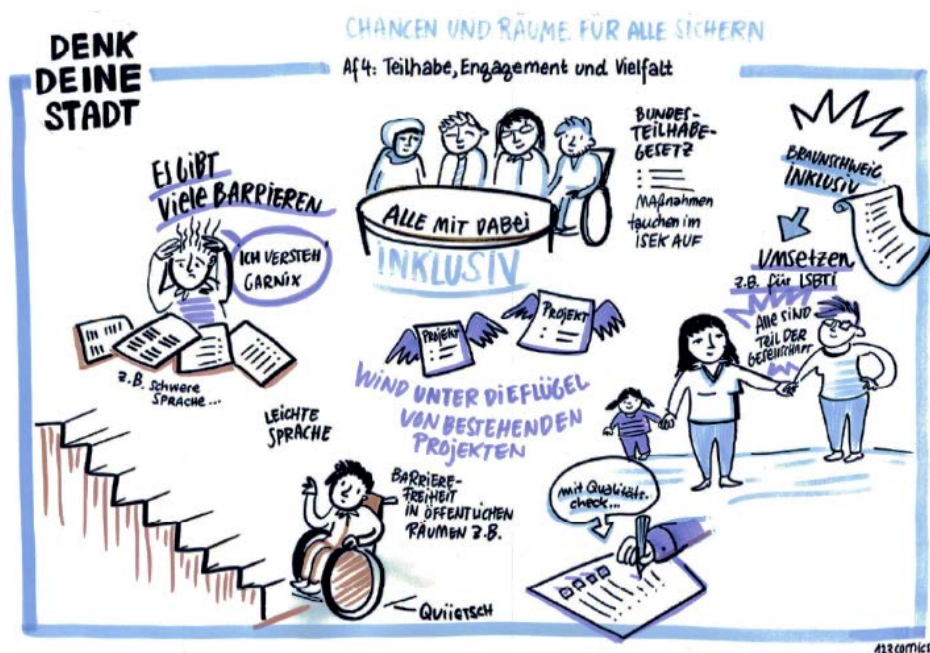 DENK
DEINE
STADT
CHANCEN UND RÄUME FÜR ALLE SICHERN
Af4: Teilhabe, Engagement und Vielfalt
ES GIBT
Viele BARRIEREN
ICH VERSTEH
GARNIX
Z.B. schwere
SPRACHE...
ALLE MIT DABEI
INKLUSIV
BUNDES-
TEILHABE-
GESETZ
MAßnahmen
tauchen im
ISEK AUF
BRAUNSCHWEIG
INKLUSIV
UMSETZEN
z.B. für LSBTI
Alle SIND
TEIL DER
GESELLSCHAFT
PROJEKT
PROJEKT
WIND UNTER DIE FLÜGEL
VON BESTEHENDEN
PROJEKTEN
LEICHTE
SPRACHE
BARRIERE-
FREIHEIT
IN ÖFFENTLICHEN
RÄUMEN Z.B.
QUIIETSCH
mit Qualitäts-
check...
123comics